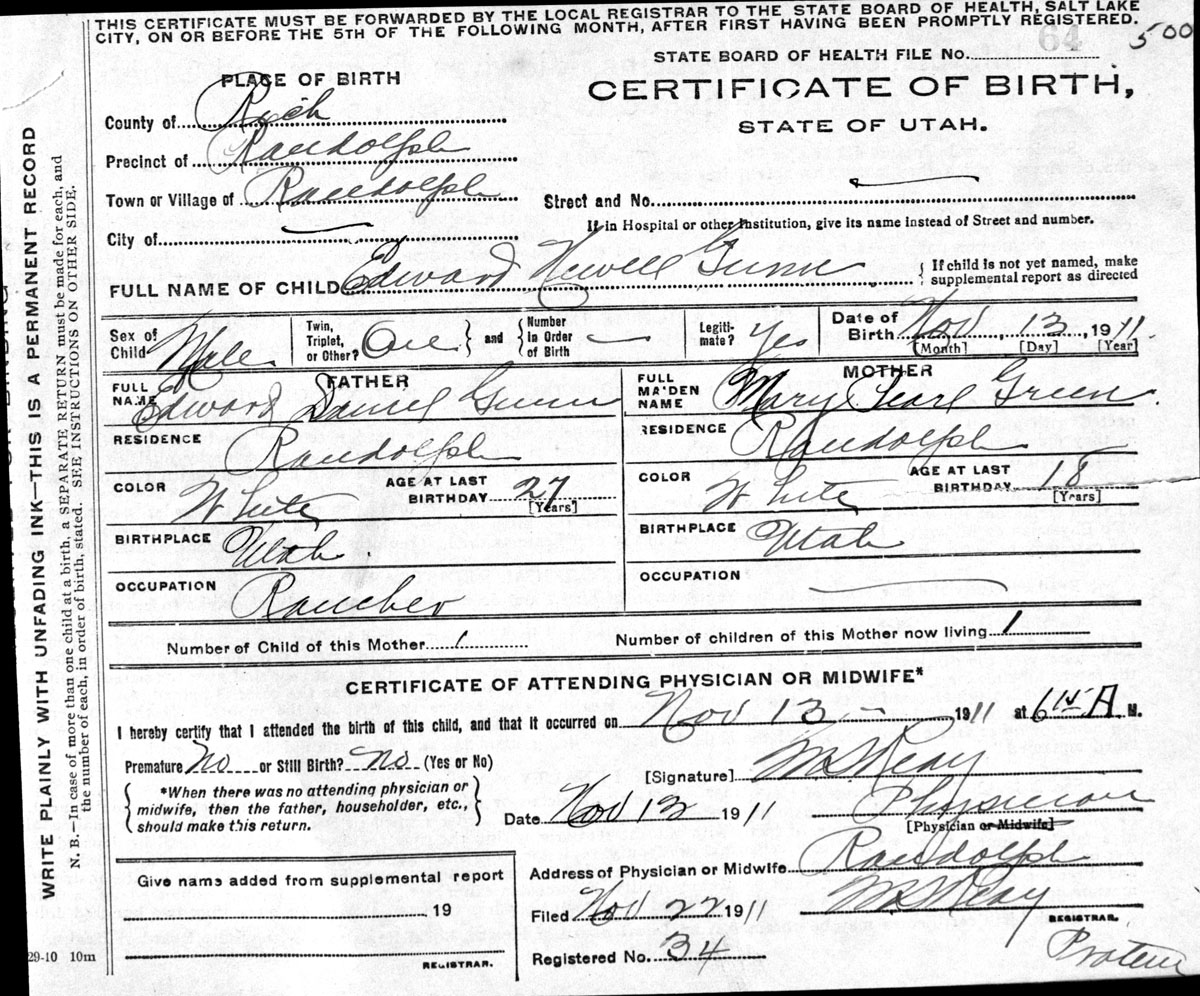 THIS CERTIFICATE MUST BE FORWARDED BY THE LOCAL REGISTRAR TO THE STATE BOARD OF HEALTH, SALT LAKE
CITY, ON OR BEFORE THE 5TH OF THE FOLLOWING MONTH, AFTER FIRST HAVING BEEN PROMPTLY REGISTERED.
64
500
STATE BOARD OF HEALTH FILE No.
PLACE OF BIRTH
CERTIFICATE OF BIRTH,
STATE OF UTAH.
County of Rich
Precinct of Randolph
Town or Village of Randolph
Street and No.
If in Hospital or other Institution, give its name instead of Street and number.
City of
FULL NAME OF CHILD Edward Newell Gunn
If child is not yet named, make
supplemental report as directed
Sex of Child Male
Twin, Triplet, or Other? One and Number in Order of Birth
Legiti-mate? Yes
Date of Birth Nov 13, 1911
[Month] [Day] [Year]
FATHER
FULL NAME Edward Daniel Gunn
RESIDENCE Randolph
COLOR White AGE AT LAST BIRTHDAY 27 [Years]
BIRTHPLACE Utah
OCCUPATION Rancher
MOTHER
FULL MAIDEN NAME Mary Pearl Green
RESIDENCE Randolph
COLOR White AGE AT LAST BIRTHDAY 18 [Years]
BIRTHPLACE Utah
OCCUPATION
Number of Child of this Mother 1 Number of children of this Mother now living 1
CERTIFICATE OF ATTENDING PHYSICIAN OR MIDWIFE*
I hereby certify that I attended the birth of this child, and that it occurred on Nov 13 1911 at A M.
Premature No or Still Birth? No (Yes or No)
[Signature]
*When there was no attending physician or
midwife, then the father, householder, etc.,
should make this return.
Date Nov 13 1911 Physician
[Physician or Midwife]
Address of Physician or Midwife Randolph
Give name added from supplemental report
19
REGISTRAR.
Filed Nov 22 1911
REGISTRAR.
Registered No. 34
29-10 10m
WRITE PLAINLY WITH UNFADING INK—THIS IS A PERMANENT RECORD
N. B.—In case of more than one child at a birth, a SEPARATE RETURN must be made for each, and
the number of each, in order of birth, stated. SEE INSTRUCTIONS ON OTHER SIDE.